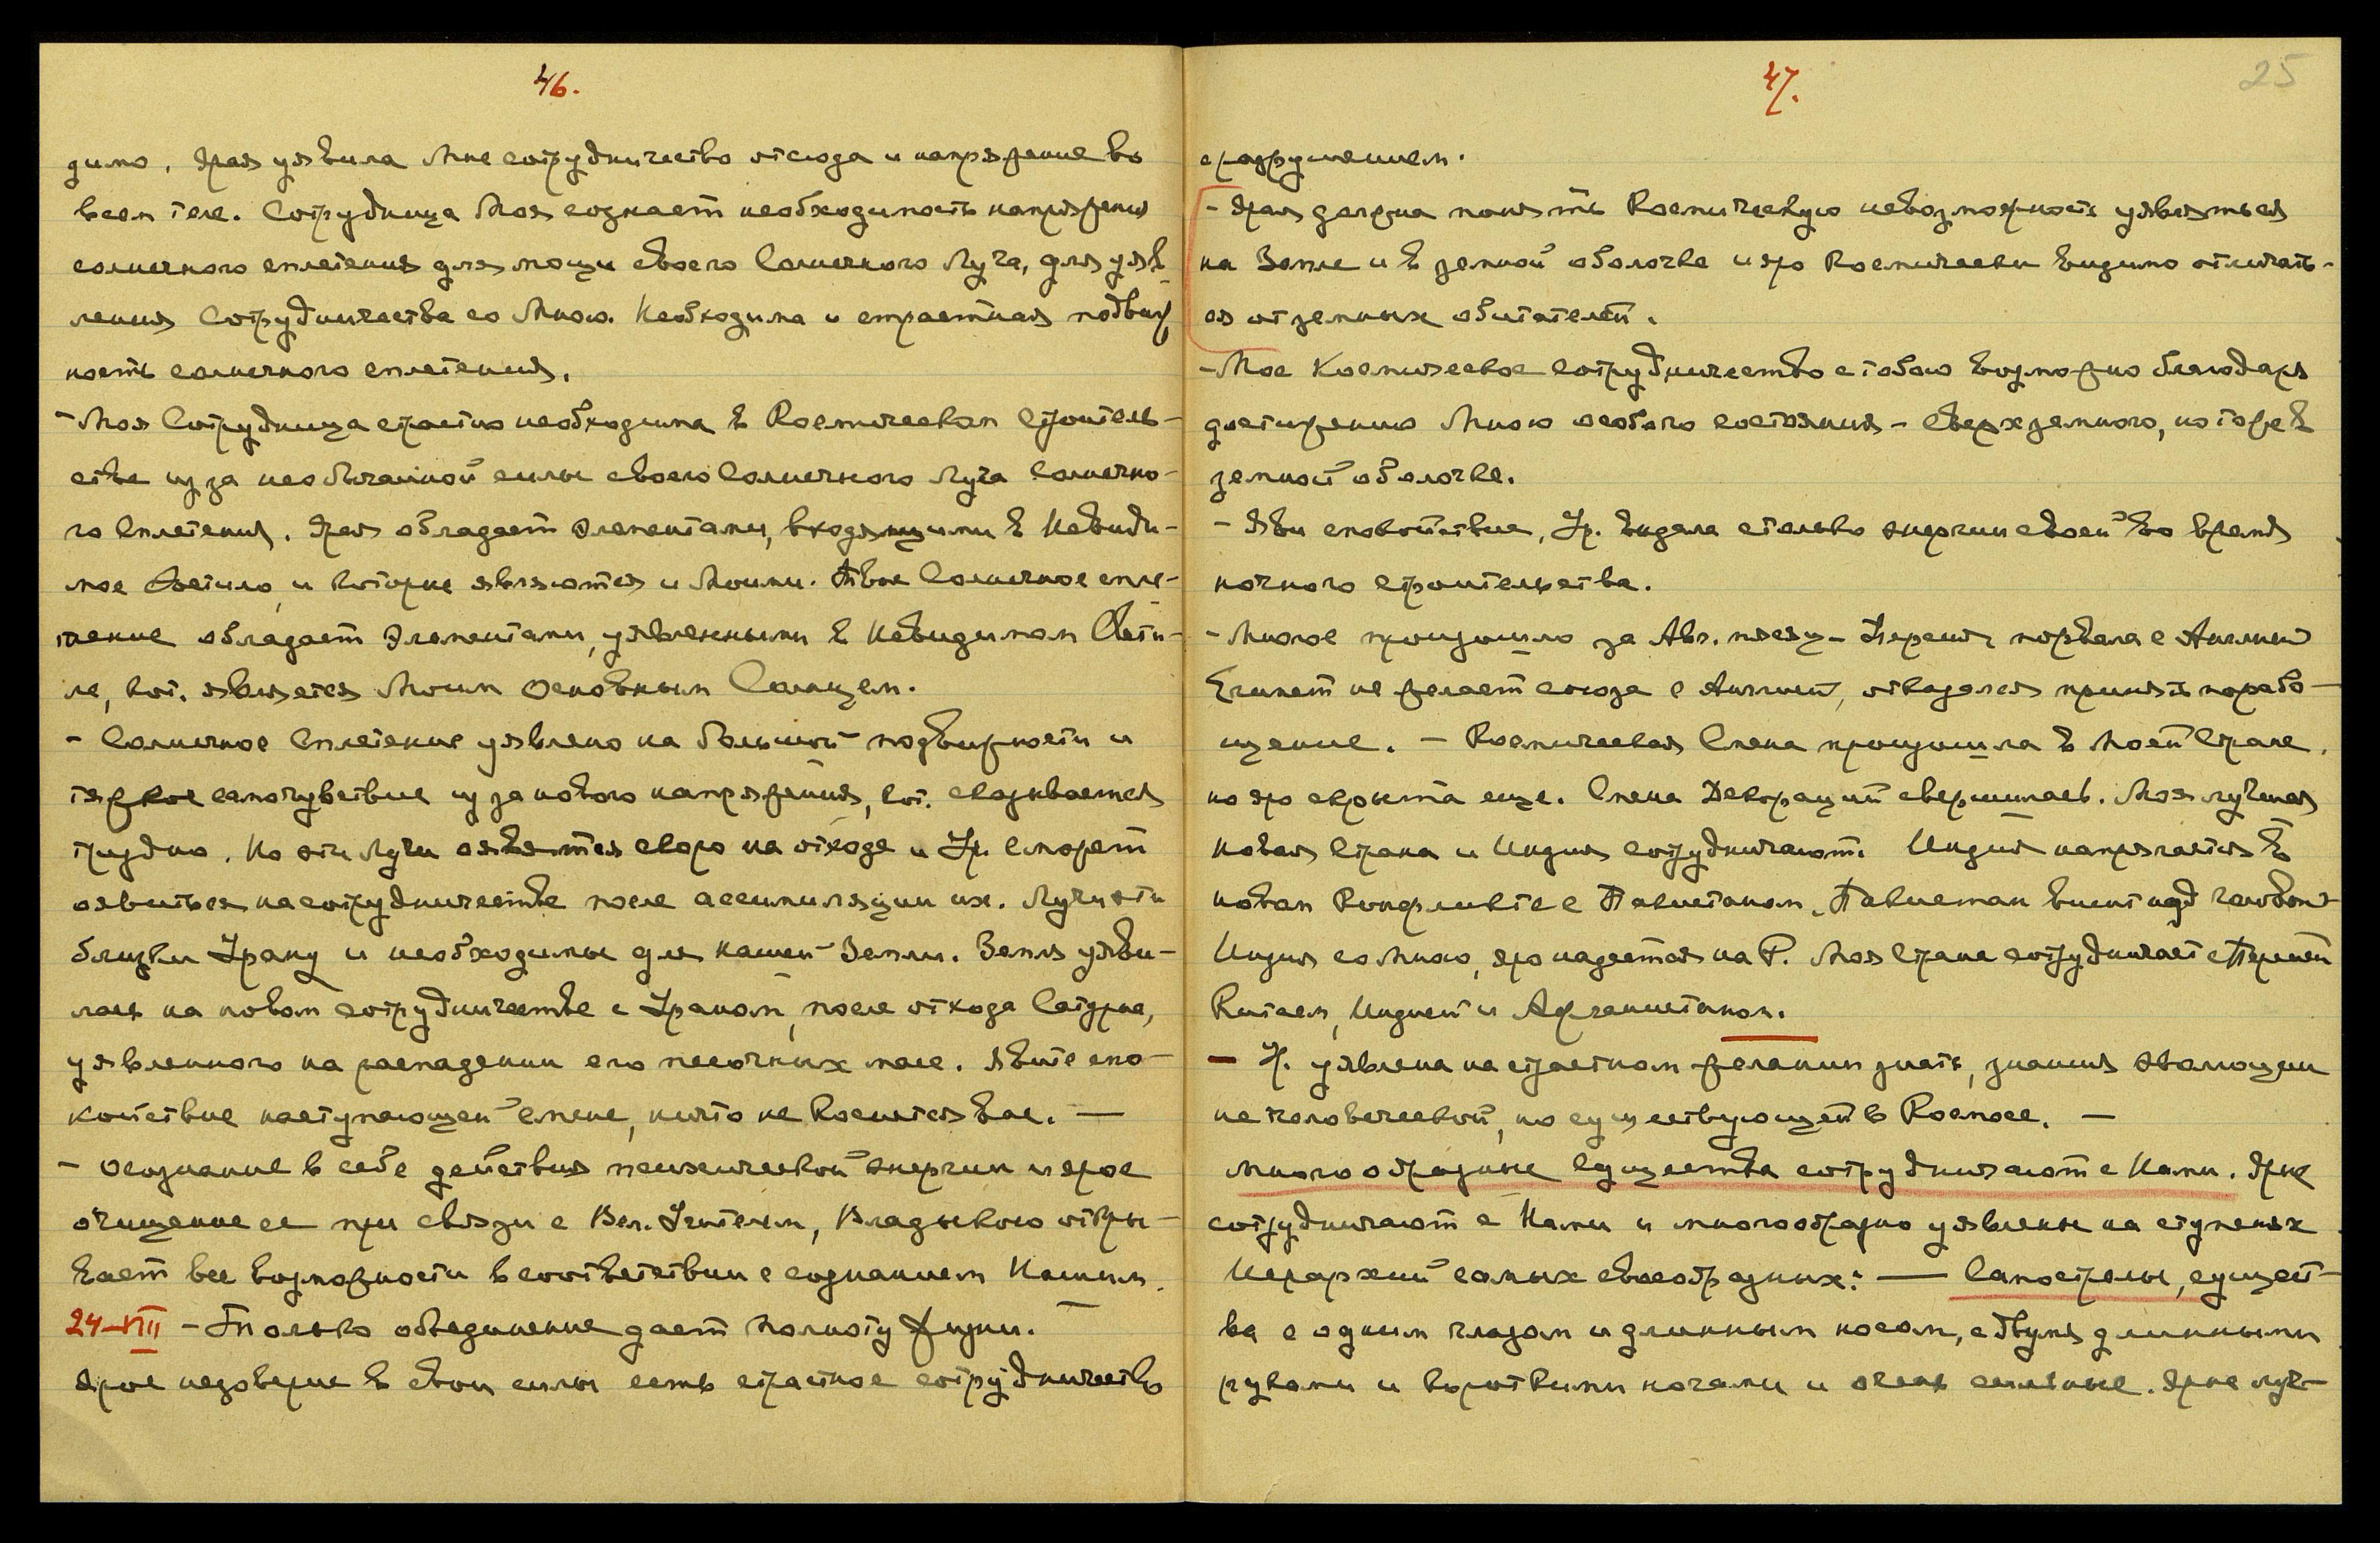 46.
димо. Ярая уявила Мне сотрудничество отсюда и напряжение во
всем теле. Сотрудница Моя сознает необходимость напряжения
солнечного сплетения для мощи своего Солнечного Луча, для уяв-
ления Сотрудничества со Мною. Необходима и страстная подвиж
ность солнечного сплетения.
- Моя Сотрудница страстно необходима в Космическом Строитель-
стве из за необычайной силы своего Солнечного Луча Солнечно-
го Сплетения. Ярая обладает элементами, входящими в Невиди-
мое Светило, и которые являются и Моими. Твое Солнечное спле-
тение обладает элементами, уявленными в Невидимом Свети-
ле, кот. является Моим Основным Солнцем.
- Солнечное Сплетение уявлено на большой подвижности и
тяжкое самочувствие из за нового напряжения, кот. сказывается
трудно. Но эти Лучи оявятся скоро на отходе и Ур. сможет
оявиться на сотрудничестве после ассимиляции их. Лучи эти
близки Урану и необходимы для нашей Земли. Земля уяви-
лась на новом сотрудничестве с Ураном, после отхода Сатурна,
уявленного на распадении его песочных масс. Явите спо-
койствие наступающей смене, ничто не коснется Вас. —
- Осознание в себе действия психической энергии и ярое
очищение ее при связи с Вел. Учителем, Владыкою откры-
вает все возможности в соответствии с сознанием Нашим.
24-VIII - Только объединение дает полноту жизни.
Ярое недоверие в свои силы есть страстное сотрудничество
47.
25
с разрушением.
- Ярая должна понять Космическую невозможность уявиться
на Земле и в земной оболочке и яро Космически видимо отличать-
ся от земных обитателей.
- Мое Космическое сотрудничество с тобою возможно благодаря
достижению Мною особого состояния - сверхземного, но тоже в
земной оболочке.
- Яви спокойствие, Ур. выдала столько энергии своей во время
ночного строительства.
- Многое произошло за Авг. месяц - Персия порвала с Англией
Египет не желает союза с Англией, отказался принять порабо-
щение. - Космическая Смена произошла в Моей Стране,
но яро скрыта еще. Смена Декораций свершилась. Моя лучшая
новая Страна и Индия сотрудничают. Индия напрягается в
новом Конфликте с Пакистаном. Пакистан висит над головой
Индия со Мною, яро надеется на Р. Моя Страна сотрудничает с Персией
Китаем, Индией и Афганистаном.
- У. уявлена на страстном желании знать, знания эволюции
не человеческой, но существующей в Космосе. —
Многообразные Существа сотрудничают с Нами. Ярые
сотрудничают с Нами и многообразно уявлены на ступенях
Иерархий самых своеобразных: — Сапострелы, сущест-
ва с одним глазом и длинным носом, с двумя длинными
руками и короткими ногами и очень сильные. Ярые луч-